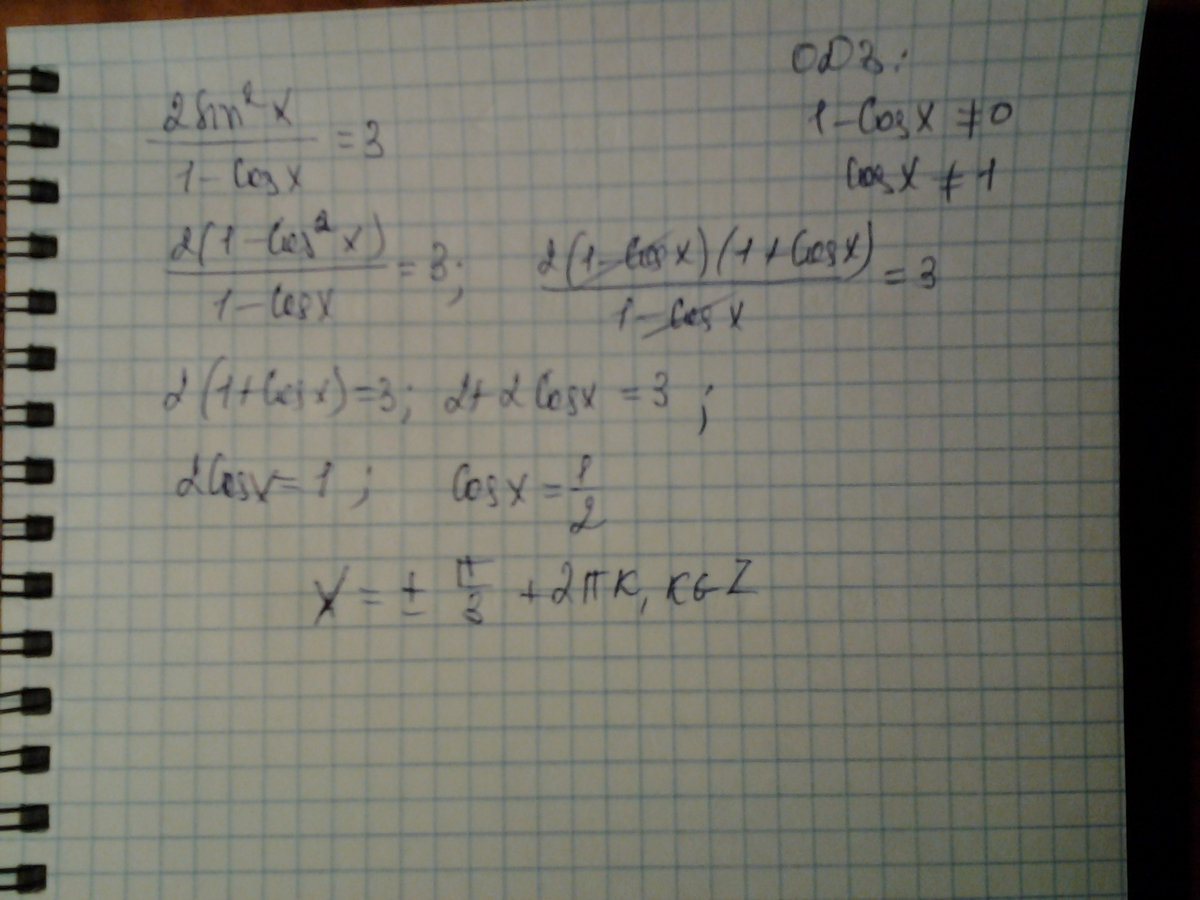 ОДЗ:
2sin²x / (1 - cosx) = 3
1 - cosx ≠ 0
cosx ≠ 1
2(1 - cos²x) / (1 - cosx) = 3; 2(1 - cosx)(1 + cosx) / (1 - cosx) = 3
2(1 + cosx) = 3; 2 + 2cosx = 3;
2cosx = 1; cosx = 1/2
x = ± π/3 + 2πк, к∈Z